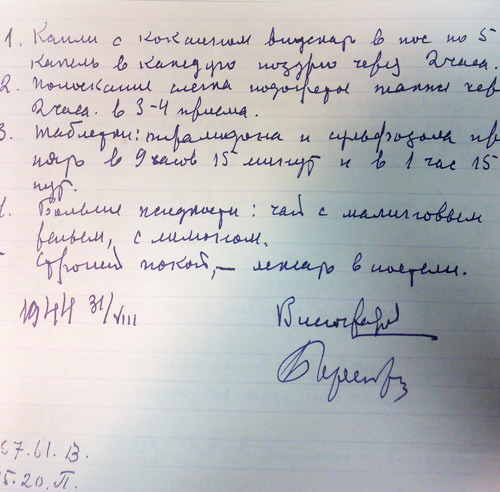 1. Капли с кокаином впускать в нос по 5
капель в каждую ноздрю через 2 часа.
2. Полоскание слегка подогретое также чер
2 часа. в 3-4 приема.
3. Таблетки: пирамидона и сульфазола пр
нять в 9 часов 15 минут и в 1 час 15
нут.
Больше жидкости: чай с малиновым
реньем, с лимоном.
Строгий покой, – лежать в постели.
1944 31/VIII
Виноградов
67.61. В.
5.20. П.